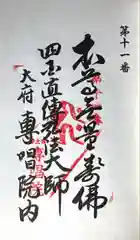 第十一番
本尊無量壽佛
四国直傳弘法大師
大府 專唱院内